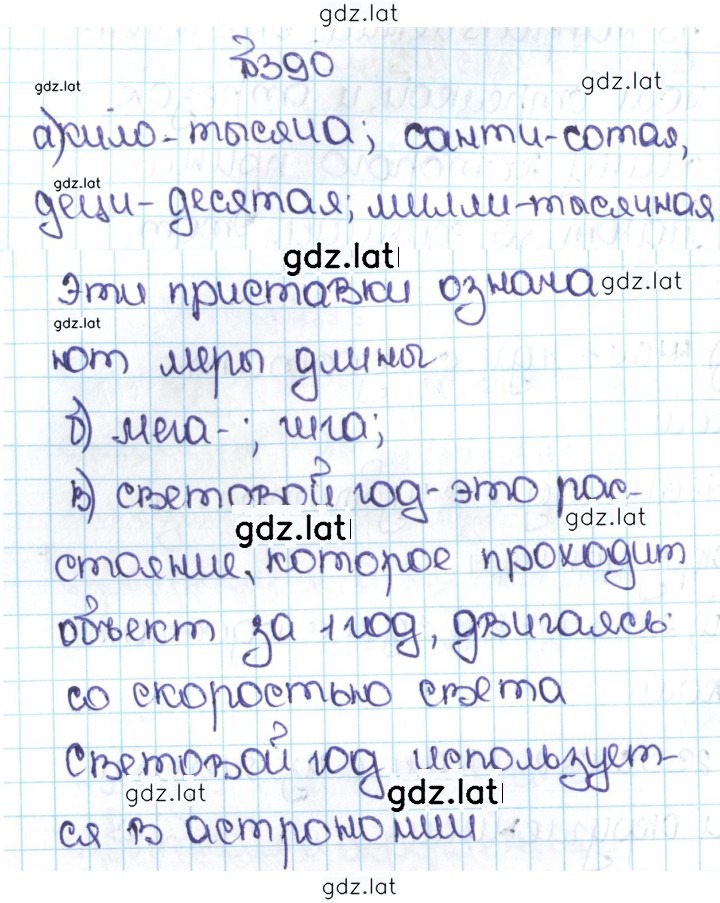 gdz.lat
№390
gdz.lat
gdz.lat
а)кило-тысяча; санти-сотая,
gdz.lat
деци-десятая; милли-тысячная
gdz.lat
Эти приставки означа
gdz.lat
gdz.lat
ют меры длины
б) мега-; гига;
в) световой год-это рас-
gdz.lat
gdz.lat
стояние, которое проходит
объект за 1 год, двигаясь
со скоростью света
Световой год использует-
gdz.lat
gdz.lat
ся в астрономии
gdz.lat